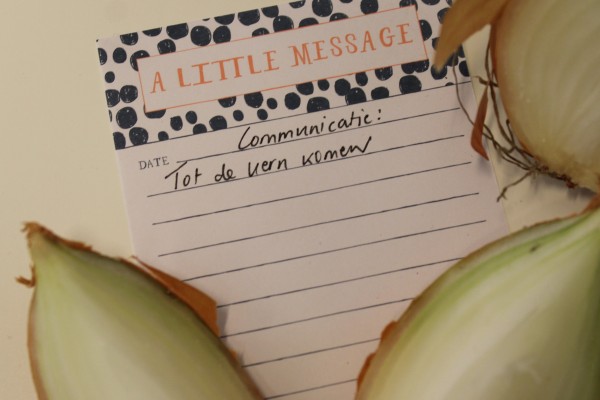 A LITTLE MESSAGE
DATE Communicatie:
Tot de kern komen